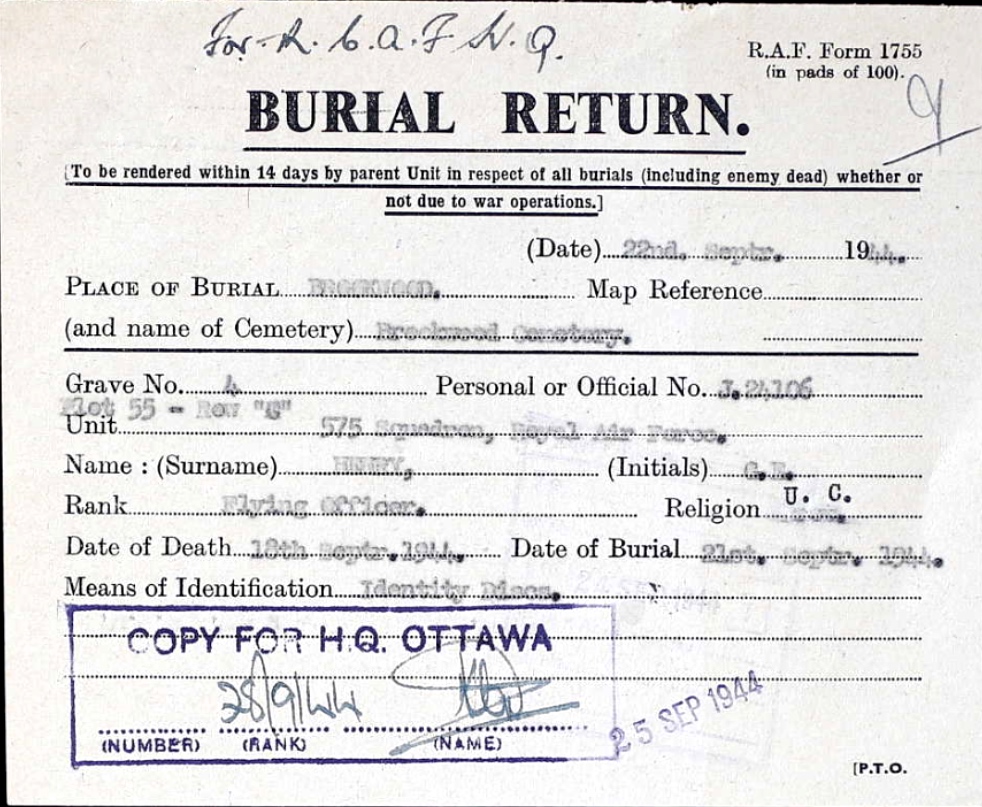 For R.C.A.F H.Q.
R.A.F. Form 1755
(in pads of 100).
BURIAL RETURN.
[To be rendered within 14 days by parent Unit in respect of all burials (including enemy dead) whether or
not due to war operations.]
(Date) 22nd. Septr. 1944.
PLACE OF BURIAL BROOKWOOD. Map Reference
(and name of Cemetery) Brookwood Cemetery.
Grave No. 4 Personal or Official No. J.24106
Plot 55 - Row "G"
Unit 575 Squadron, Royal Air Force.
Name : (Surname) HENRY, (Initials) G.E.
Rank Flying Officer. Religion U. C.
Date of Death 18th Septr. 1944. Date of Burial 21st. Septr. 1944.
Means of Identification Identity Discs.
24 SEP 1944
COPY FOR H.Q. OTTAWA
28/9/44
(NUMBER) (RANK) (NAME)
25 SEP 1944
[P.T.O.